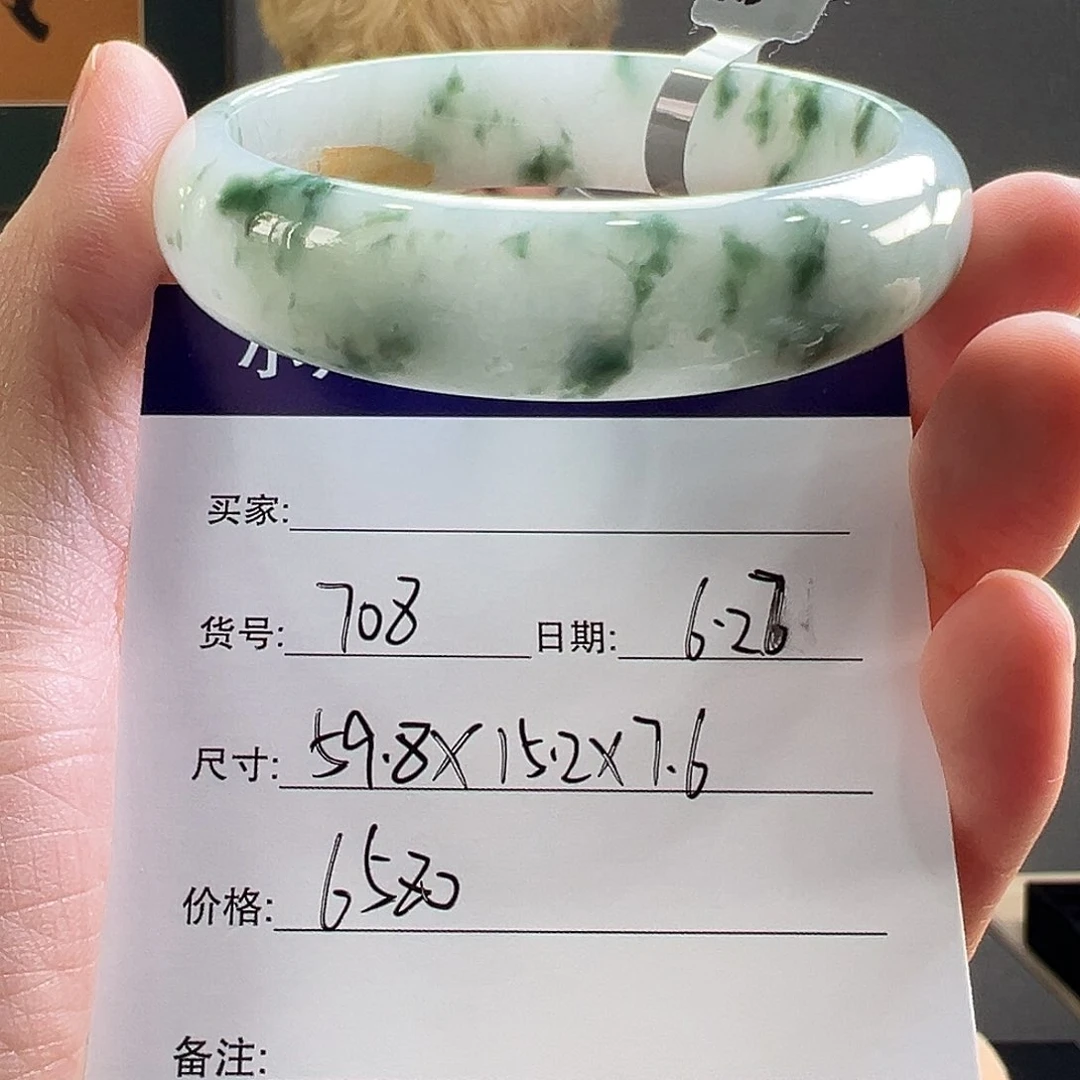 买家:
货号: 708 日期: 6.28
尺寸: 59.8X15.2X7.6
价格: 6580
备注: